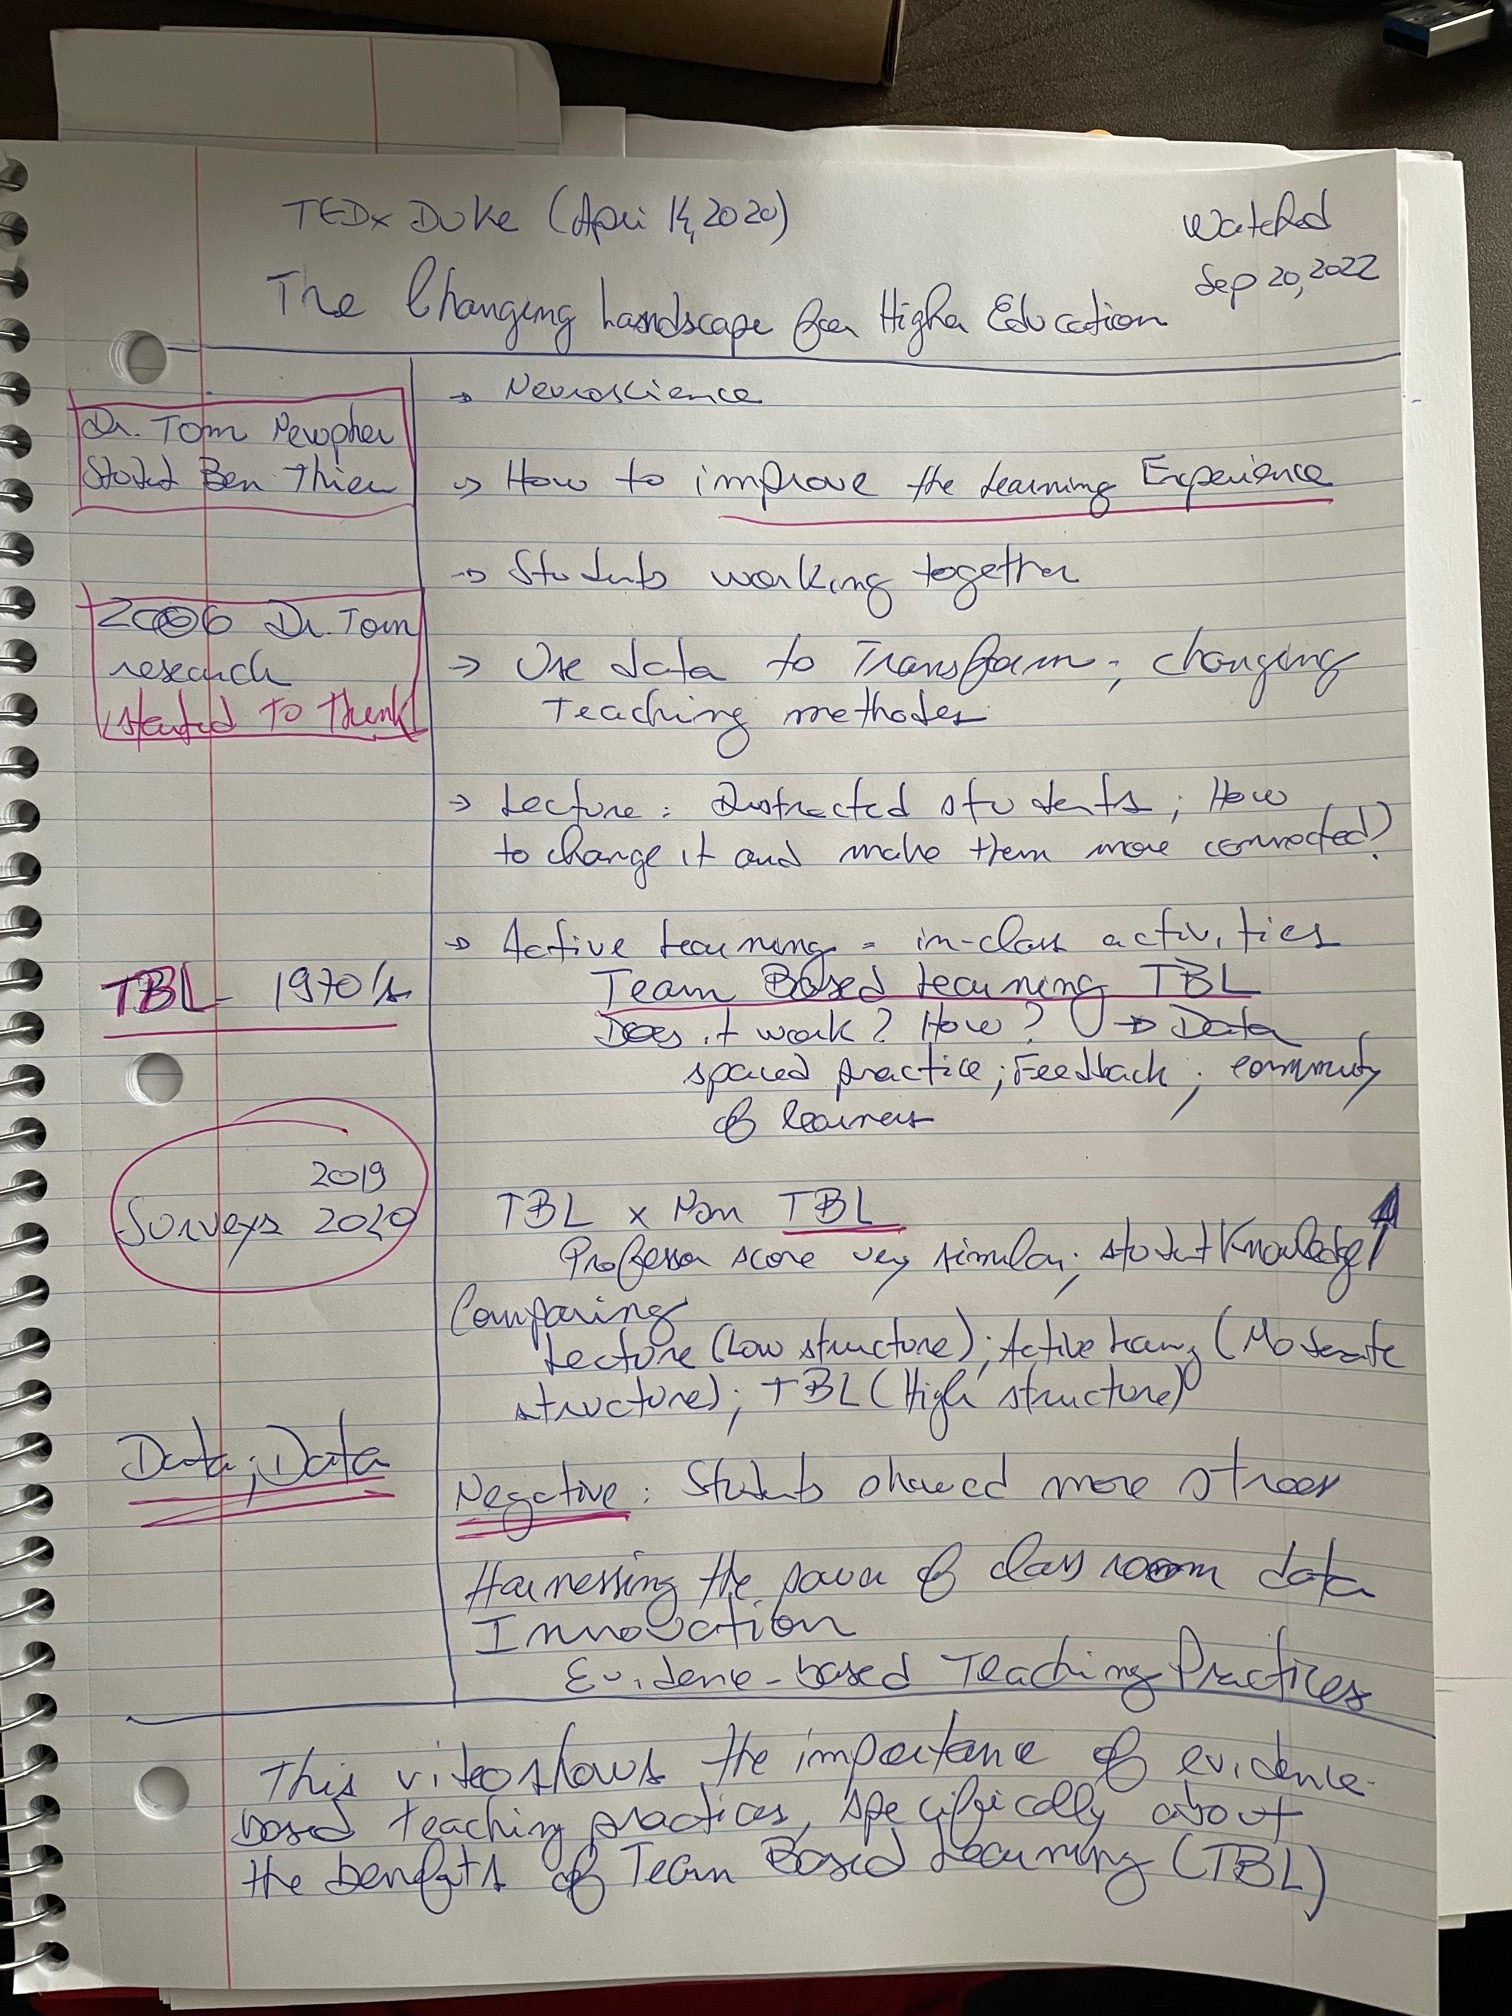 TEDx Duke (Apri 14, 2020)
Watched
Sep 20, 2022
The Changing Landscape for Higher Education
Dr. Tom
Ben Thier
2006 Dr. Tom
research
started to think!
TBL 1970's
2019
Surveys 2020
Data; Data
→ Neuroscience
→ How to improve the learning Experience
→ Students working together
→ Use data to Transform; changing
Teaching methodes
→ Lecture: Distracted students; How
to change it and make them more connected?
→ Active learning = in-class activities
Team Based Learning TBL
Does it work? How? → Data
spaced practice; Feedback; community
of learners
TBL x Non TBL
Professor score very similar; student Knowledge ↑
Comparing
Lecture (Low structure); Active (Moderate
structure); TBL (High structure)
Negative: Students showed more stress
Harnessing the power of classroom data
Innovation
Evidence-based Teaching Practices
This video shows the importance of evidence-
based teaching practices, specifically about
the benefits of Team Based Learning (TBL)